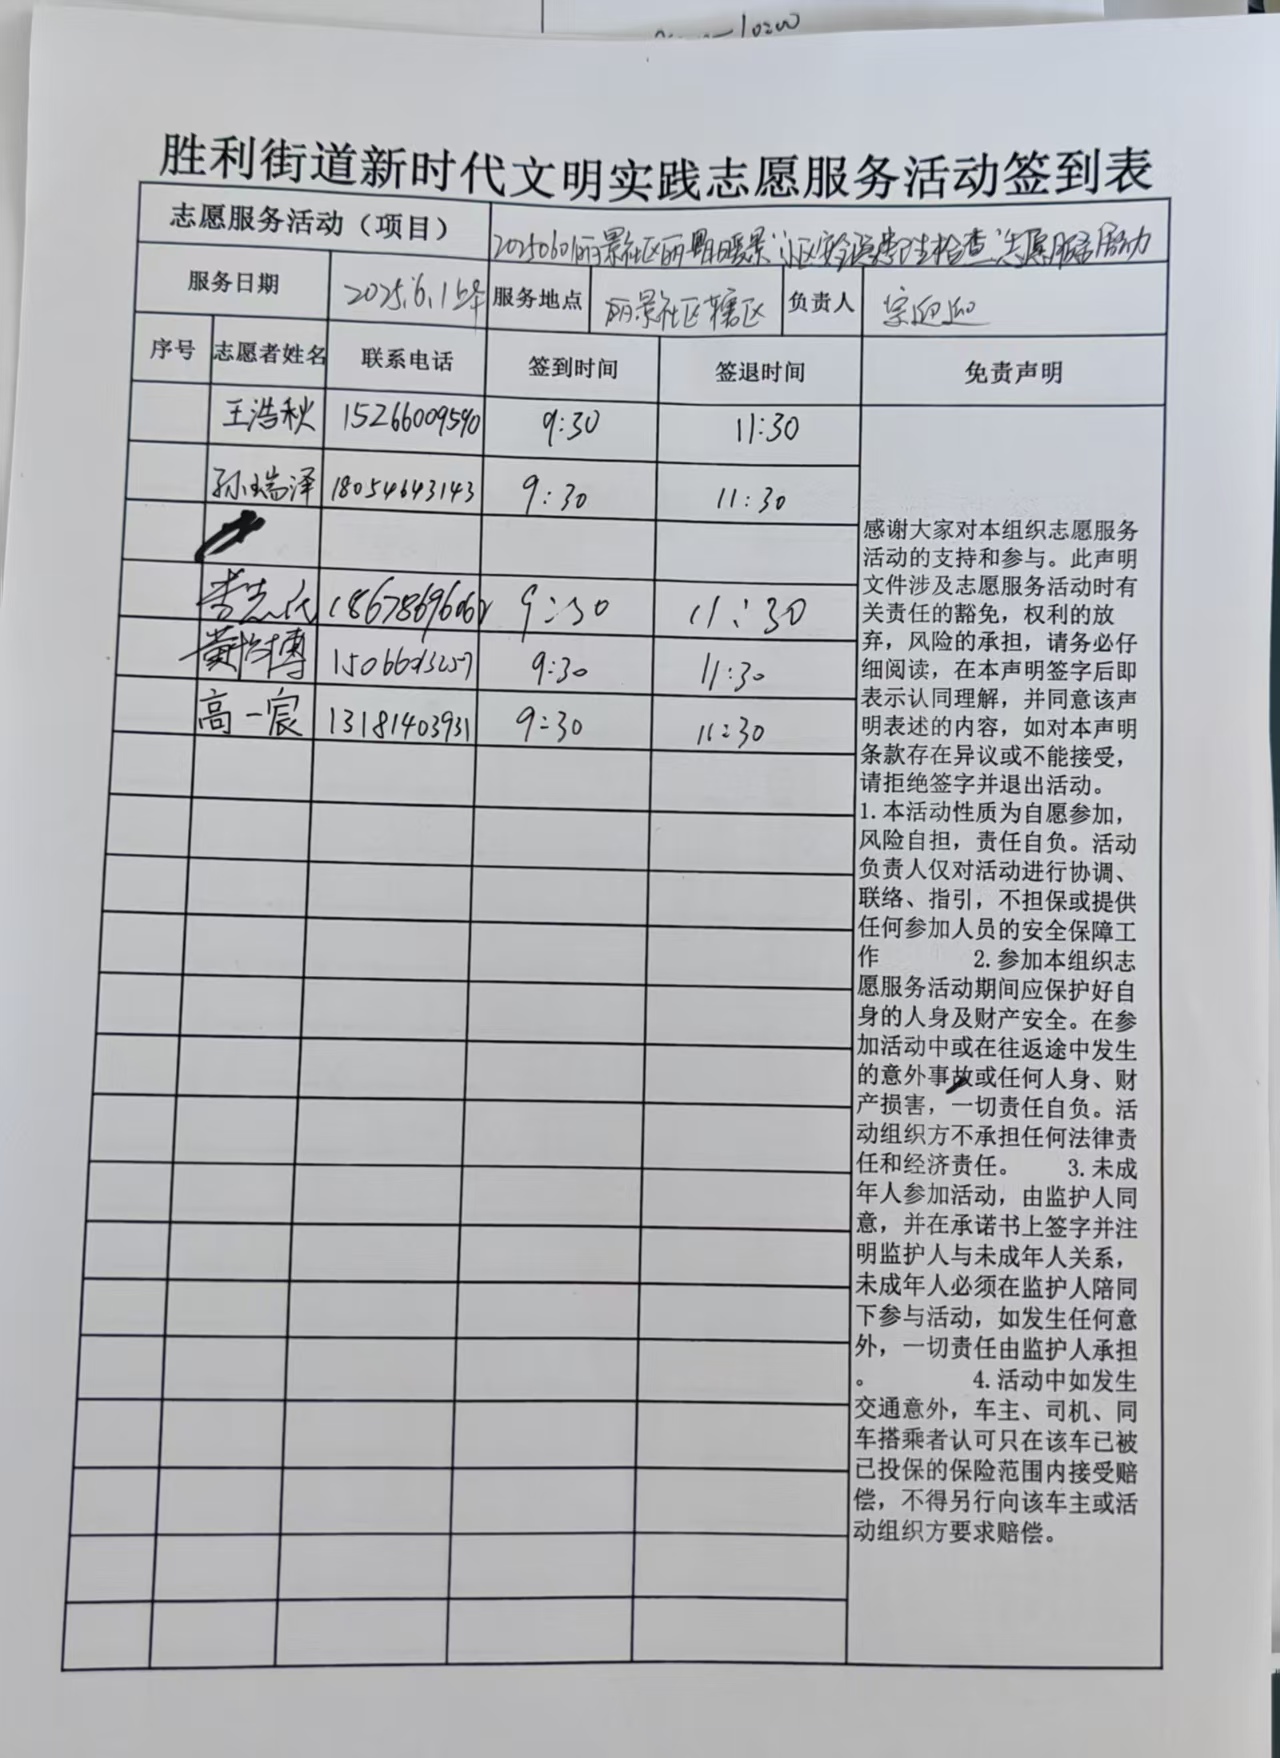 胜利街道新时代文明实践志愿服务活动签到表
志愿服务活动（项目） 20250601丽景社区 小区 卫生检查"志愿服务活动
服务日期 2025.6.1上午 服务地点 丽景社区辖区 负责人 宗迎迎
序号 志愿者姓名 联系电话 签到时间 签退时间 免责声明
王浩秋 15266009590 9:30 11:30
孙瑞泽 18054643143 9:30 11:30
李志 9:30 11:30
黄 博 9:30 11:30
高一宸 13181403931 9:30 11:30
感谢大家对本组织志愿服务
活动的支持和参与。此声明
文件涉及志愿服务活动时有
关责任的豁免，权利的放
弃，风险的承担，请务必仔
细阅读，在本声明签字后即
表示认同理解，并同意该声
明表述的内容，如对本声明
条款存在异议或不能接受，
请拒绝签字并退出活动。
1.本活动性质为自愿参加，
风险自担，责任自负。活动
负责人仅对活动进行协调、
联络、指引，不担保或提供
任何参加人员的安全保障工
作 2.参加本组织志
愿服务活动期间应保护好自
身的人身及财产安全。在参
加活动中或在往返途中发生
的意外事故或任何人身、财
产损害，一切责任自负。活
动组织方不承担任何法律责
任和经济责任。 3.未成
年人参加活动，由监护人同
意，并在承诺书上签字并注
明监护人与未成年人关系，
未成年人必须在监护人陪同
下参与活动，如发生任何意
外，一切责任由监护人承担
。 4.活动中如发生
交通意外，车主、司机、同
车搭乘者认可只在该车已被
已投保的保险范围内接受赔
偿，不得另行向该车主或活
动组织方要求赔偿。